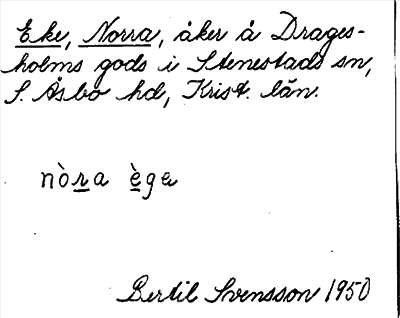 Eke, Norra, åker å Drages-
holms gods i Stenestads sn,
S. Åsbo hd, Krist. län.
nòra ègɐ
Bertil Svensson 1950